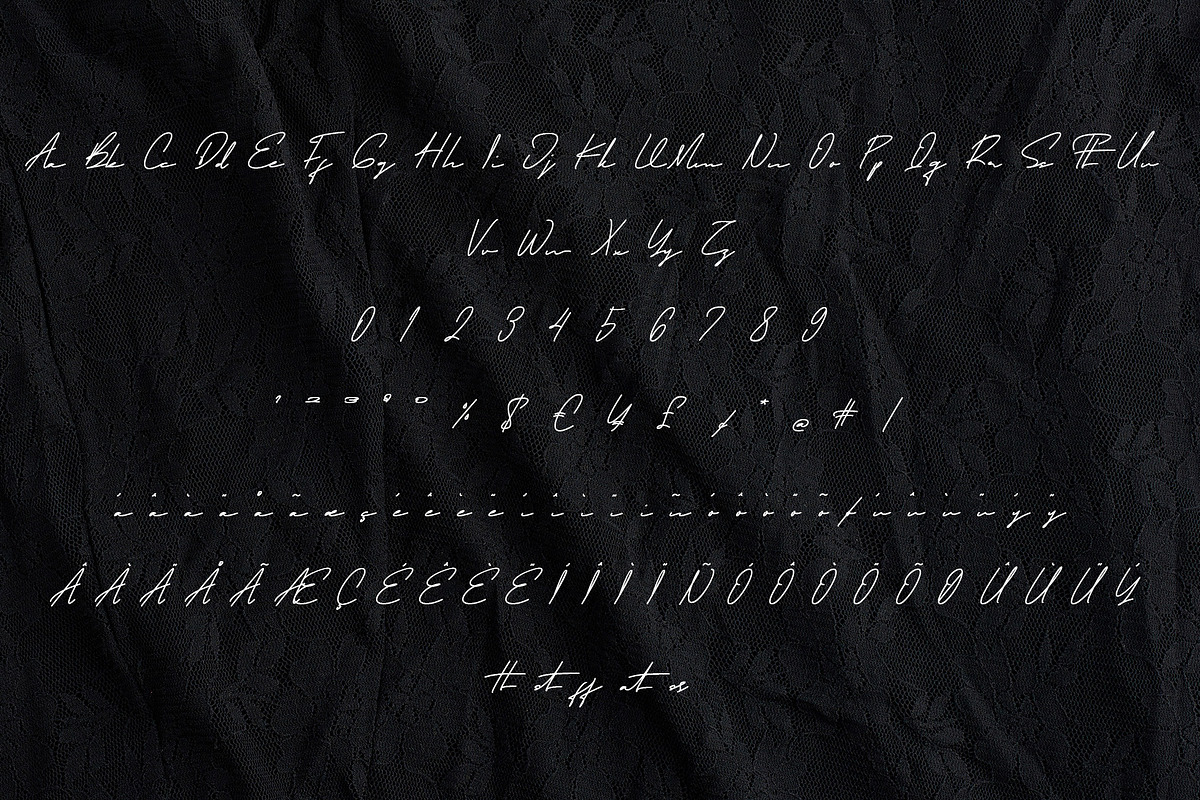 Aa Bb Cc Dd Ee Ff Gg Hh Ii Jj Kk Ll Mm Nn Oo Pp Qq Rr Ss Tt Uu
Vv Ww Xx Yy Zz
0 1 2 3 4 5 6 7 8 9
¹ ² ³ ª º % $ € ¥ £ ¢ * @ # /
á â à ä å ã æ ç é ê è ë í î ì ï ñ ó ô ò ö õ ú û ù ü ý ÿ
Â À Ä Å Ã Æ Ç É Ê È Ë Í Î Ì Ï Ñ Ó Ô Ò Ö Õ Ø Ú Û Ü Ý
th ot ff at os